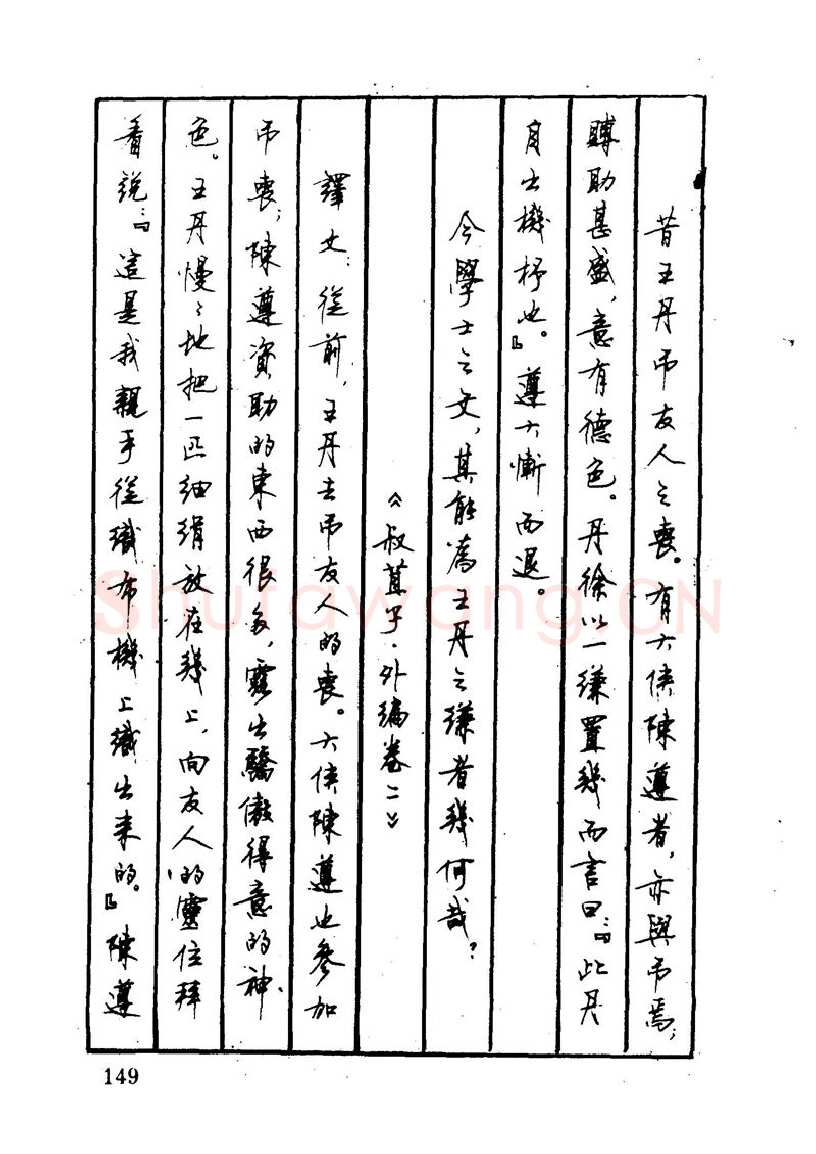 昔王丹吊友人之喪。有大俠陳遵者，亦與吊焉，
賻助甚盛，意有德色。丹徐以一縑置幾而言曰：『此丹
自出機杼也。』遵大慚而退。
今學士之文，其能為王丹之縑者幾何哉？
《叔苴子·外編卷二》
譯文：從前，王丹去吊友人的喪。大俠陳遵也參加
吊喪；陳遵資助的東西很多，露出驕傲得意的神
色。王丹慢々地把一匹細絹放在幾上，向友人的靈位拜
着說：『這是我親手從織布機上織出来的。』陳遵
149
Shufawang.CN